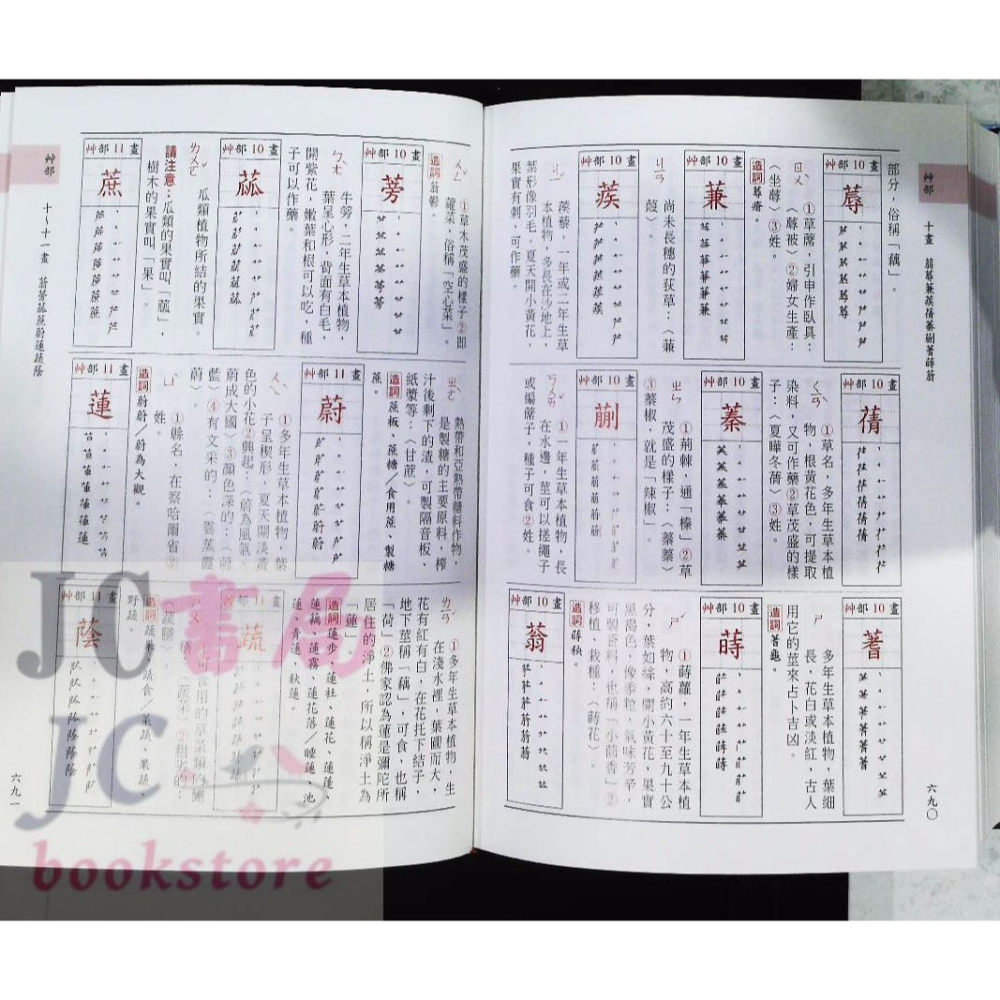 艸部
十畫
六九〇
部分，俗稱「藕」。
艸部 10 畫
蓐
①草蓆，引申作臥具：
〈蓐被〉②婦女生產：
〈坐蓐〉③姓。
造詞 蓐瘡。
艸部 10 畫
蒹
尚未長穗的荻草：〈蒹
葭〉。
艸部 10 畫
蒺
蒺藜，一年或二年生草
本植物，多長在沙地上，
葉形像羽毛。夏天開小黃花，
果實有刺，可作藥。
艸部 10 畫
蒨
①草名，多年生草本植
物，根黃花色，可提取
染料，又可作藥②草茂盛的樣
子：〈夏曄冬蒨〉③姓。
艸部 10 畫
蓁
①荊棘，通「榛」②草
茂盛的樣子：〈蓁蓁〉
③蓁椒，就是「辣椒」。
艸部 10 畫
蒯
①一年生草本植物，長
在水邊，莖可以搓繩子
或編蓆子，種子可食②姓。
艸部 10 畫
蓍
多年生草本植物，葉細
長，花白或淡紅，古人
用它的莖來占卜吉凶。
造詞 蓍龜。
艸部 10 畫
蒔
①蒔蘿，一年生草本植
物，高約六十至九十公
分，葉如絲，開小黃花，果實
黑褐色，像黍粒，氣味芳辛，
可製香料，也稱「小茴香」②
移植、栽種：〈蒔花〉。
造詞 蒔秧。
艸部 10 畫
蓊
①草木茂盛的樣子②即
蕹菜，俗稱「空心菜」。
造詞 蓊鬱。
艸部 10 畫
蒡
牛蒡，二年生草本植物，
葉呈心形，背面有白毛，
開紫花，嫩葉和根可以吃，種
子可以作藥。
艸部 10 畫
蓏
瓜類植物所結的果實。
請注意：瓜類的果實叫「蓏」，
樹木的果實叫「果」。
艸部 11 畫
蔗
熱帶和亞熱帶糖料作物，
是製糖的主要原料，榨
汁後剩下的渣，可製隔音板、
紙漿等：〈甘蔗〉。
造詞 蔗板、蔗糖／食用蔗、製糖
蔗。
艸部 11 畫
蔚
①多年生草本植物，葉
子呈楔形，夏天開淡黃
色的小花②興起：〈蔚為風氣、
蔚成大國〉③顏色深的：〈蔚
藍〉④有文采的：〈雲蒸霞
蔚〉。
造詞 蔚蔚／蔚為大觀。
①縣名，在察哈爾省②
姓。
艸部 11 畫
蓮
①多年生草本植物，生
在淺水裡，葉圓而大，
花有紅有白，在花托下結子，
地下莖稱「藕」，可食，也稱
「荷」②佛家認為蓮是彌陀所
居住的淨土，所以稱淨土為
「蓮」
造詞 蓮步、蓮社、蓮花、蓮蓬、
蓮藕、蓮霧、蓮花落／睡蓮、池
蓮、青蓮、秋蓮。
艸部 11 畫
蔬
造詞 蔬果、蔬食／菜蔬、果蔬、
野蔬。
艸部 11 畫
蔭
艸部
十～十一畫
六九一
JC書局
JC
bookstore